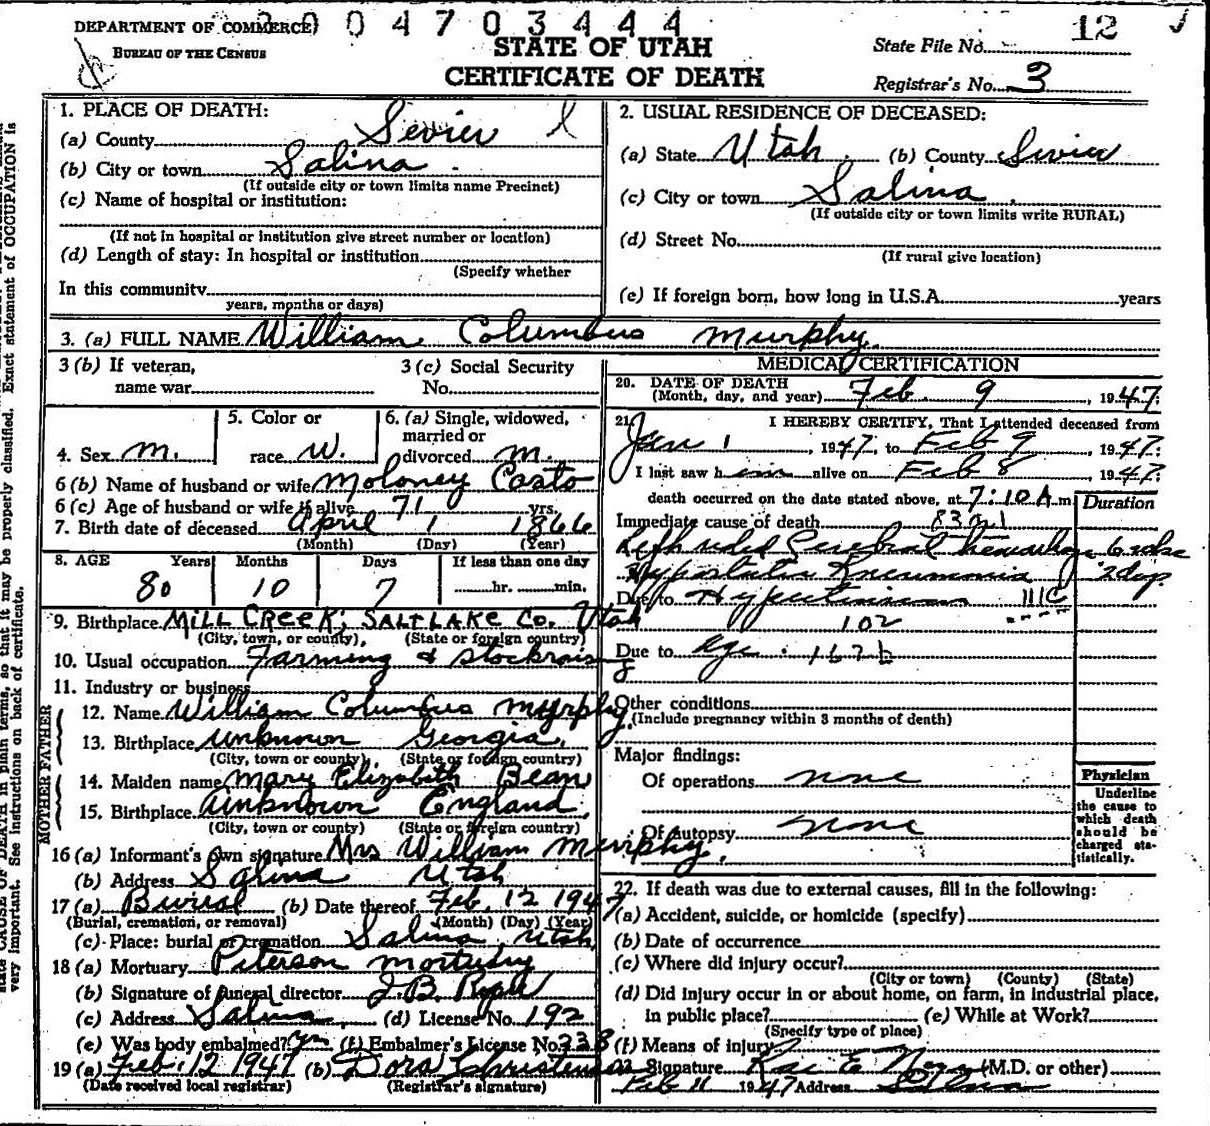 DEPARTMENT OF COMMERCE
BUREAU OF THE CENSUS
004703444
STATE OF UTAH
CERTIFICATE OF DEATH
State File No. 12
Registrar's No. 3
1. PLACE OF DEATH:
(a) County Sevier
(b) City or town Salina
(If outside city or town limits name Precinct)
(c) Name of hospital or institution:
(If not in hospital or institution give street number or location)
(d) Length of stay: In hospital or institution
(Specify whether
In this community
years, months or days)
2. USUAL RESIDENCE OF DECEASED:
(a) State Utah (b) County Sevier
(c) City or town Salina
(If outside city or town limits write RURAL)
(d) Street No.
(If rural give location)
(e) If foreign born, how long in U.S.A. years
3. (a) FULL NAME William Columbus Murphy
3 (b) If veteran,
name war
3 (c) Social Security
No.
4. Sex M.
5. Color or
race W.
6. (a) Single, widowed,
married or
divorced M.
6 (b) Name of husband or wife Moloney Casto
6 (c) Age of husband or wife if alive 71 yrs.
7. Birth date of deceased April 1 1866
(Month) (Day) (Year)
8. AGE Years Months Days If less than one day
80 10 7 hr. min.
9. Birthplace MILL CREEK, SALT LAKE CO. Utah
(City, town, or county) (State or foreign country)
10. Usual occupation Farming & Stockraising
11. Industry or business
FATHER
12. Name William Columbus Murphy
13. Birthplace Unknown Georgia
(City, town or county) (State or foreign country)
MOTHER
14. Maiden name Mary Elizabeth Bean
15. Birthplace Unknown England
(City, town or county) (State or foreign country)
16 (a) Informant's own signature Mrs William Murphy
(b) Address Salina Utah
17 (a) Burial (b) Date thereof Feb. 12 1947
(Burial, cremation, or removal) (Month) (Day) (Year)
(c) Place: burial or cremation Salina, Utah
18 (a) Mortuary Peterson Mortuary
(b) Signature of funeral director J.B.
(c) Address Salina (d) License No. 192
(e) Was body embalmed? yes (f) Embalmer's License No. 238
19 (a) Feb. 12 1947 (b) Dora Christensen
(Date received local registrar) (Registrar's signature)
MEDICAL CERTIFICATION
20. DATE OF DEATH
(Month, day, and year) Feb. 9, 1947
21. I HEREBY CERTIFY, That I attended deceased from
Jan 1, 1947, to Feb 9, 1947
I last saw him alive on Feb 8, 1947
death occurred on the date stated above, at 7:10 A m
Duration
Immediate cause of death 83
Left sided Cerebral hemorrhage 6 wks
Hypostatic Pneumonia 2 days
Due to Hypertension
102
Due to Age
Other conditions
(Include pregnancy within 3 months of death)
Major findings:
Of operations none
Of autopsy none
Physician
Underline
the cause to
which death
should be
charged sta-
tistically.
22. If death was due to external causes, fill in the following:
(a) Accident, suicide, or homicide (specify)
(b) Date of occurrence
(c) Where did injury occur?
(City or town) (County) (State)
(d) Did injury occur in or about home, on farm, in industrial place,
in public place? (e) While at Work?
(Specify type of place)
(f) Means of injury
23. Signature Rae E Noyes (M.D. or other)
Feb 11 1947 Address Salina
state CAUSE OF DEATH in plain terms, so that it may be properly classified. Exact statement of OCCUPATION is
very important. See instructions on back of certificate.